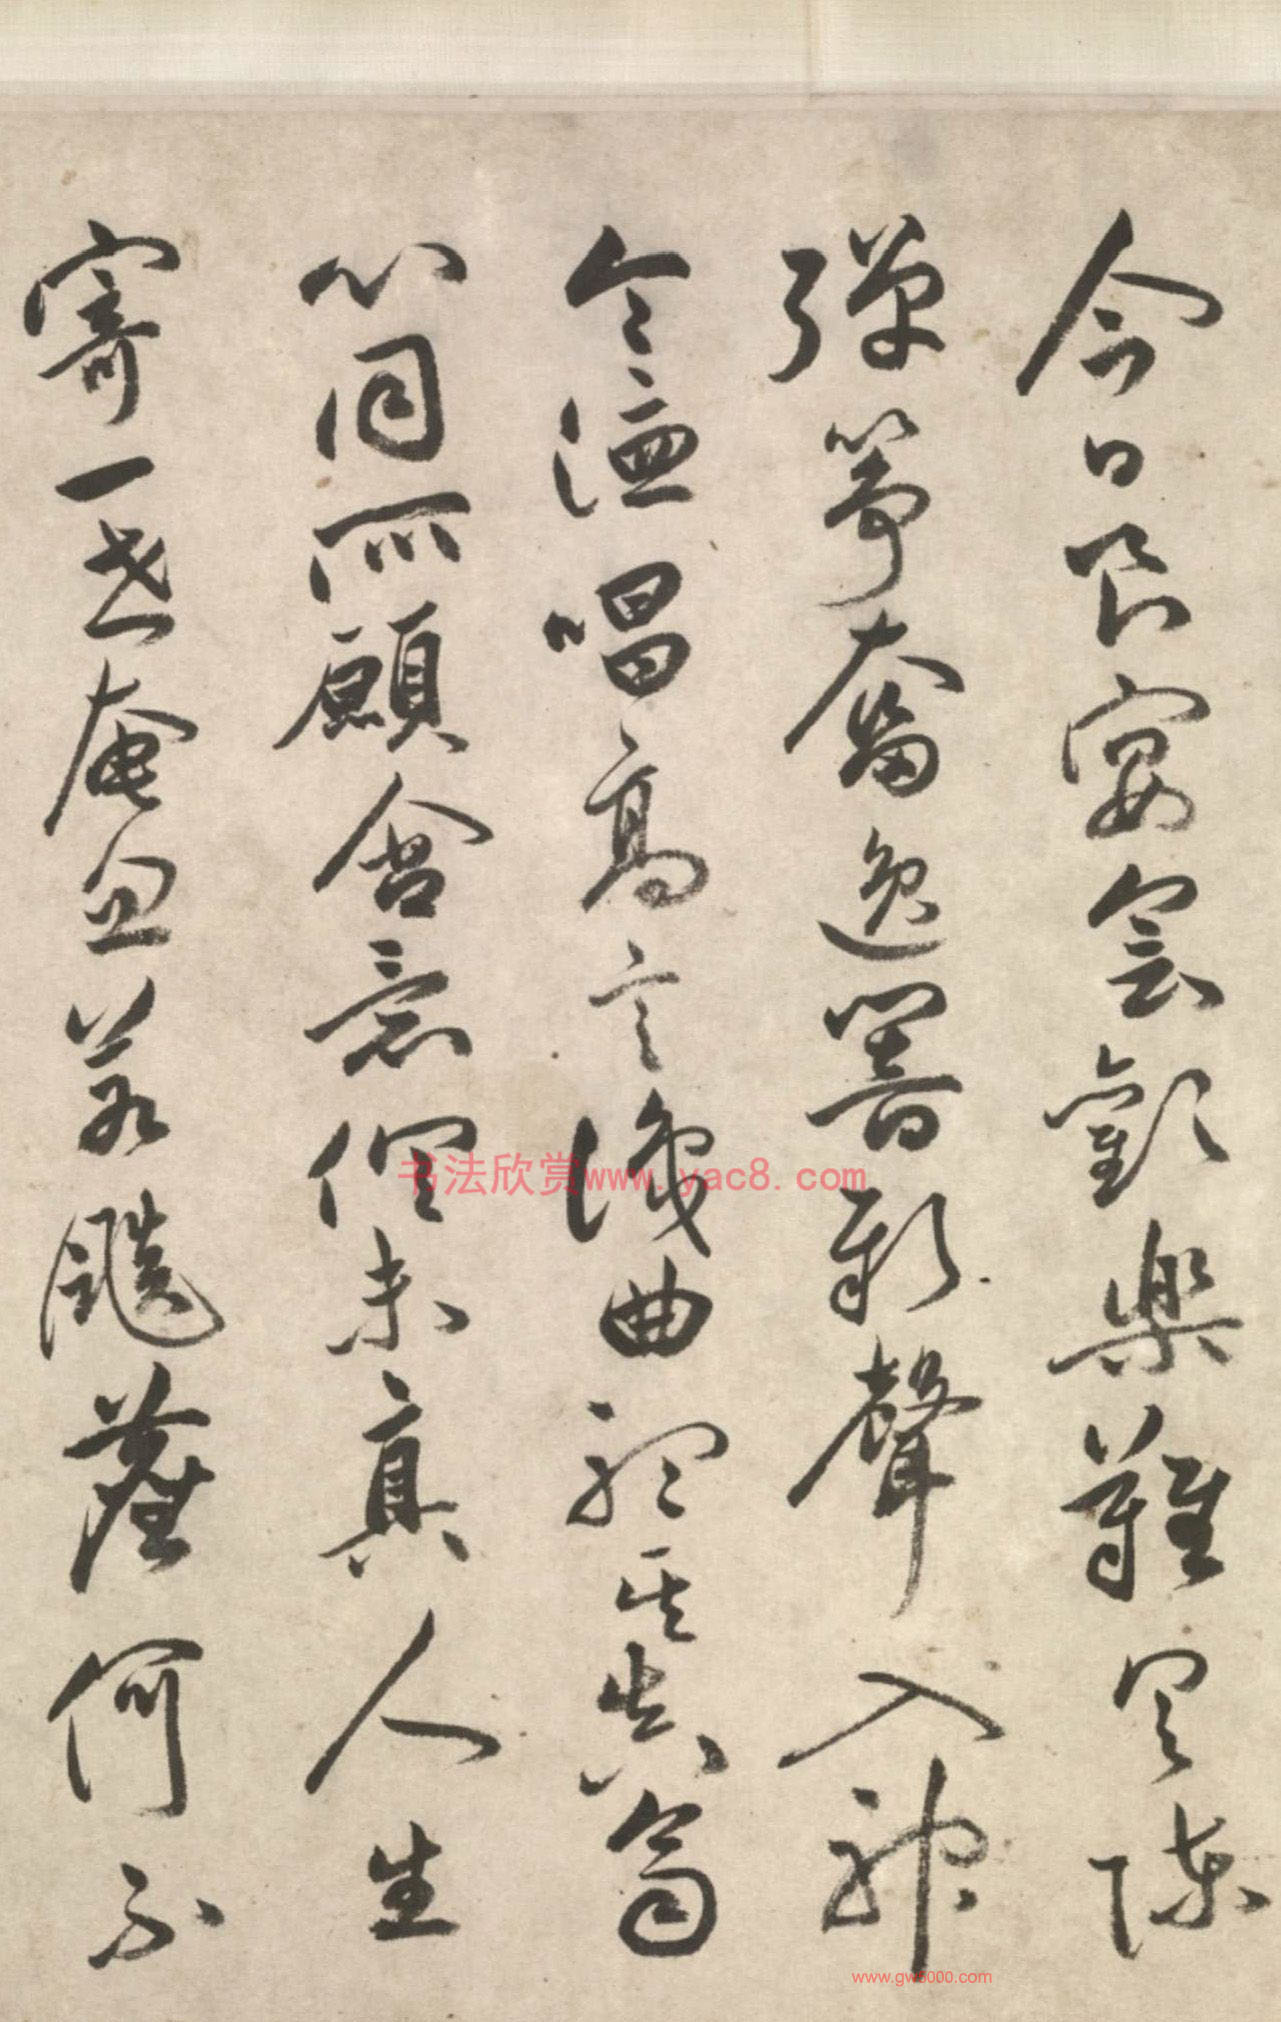 今日良宴會歡樂難具陳
彈箏奮逸響新聲入神
令德唱高言識曲聽其真齊
心同所願含意俱未真人生
寄一世奄忽若飈塵何不
书法欣赏www.yac8.com